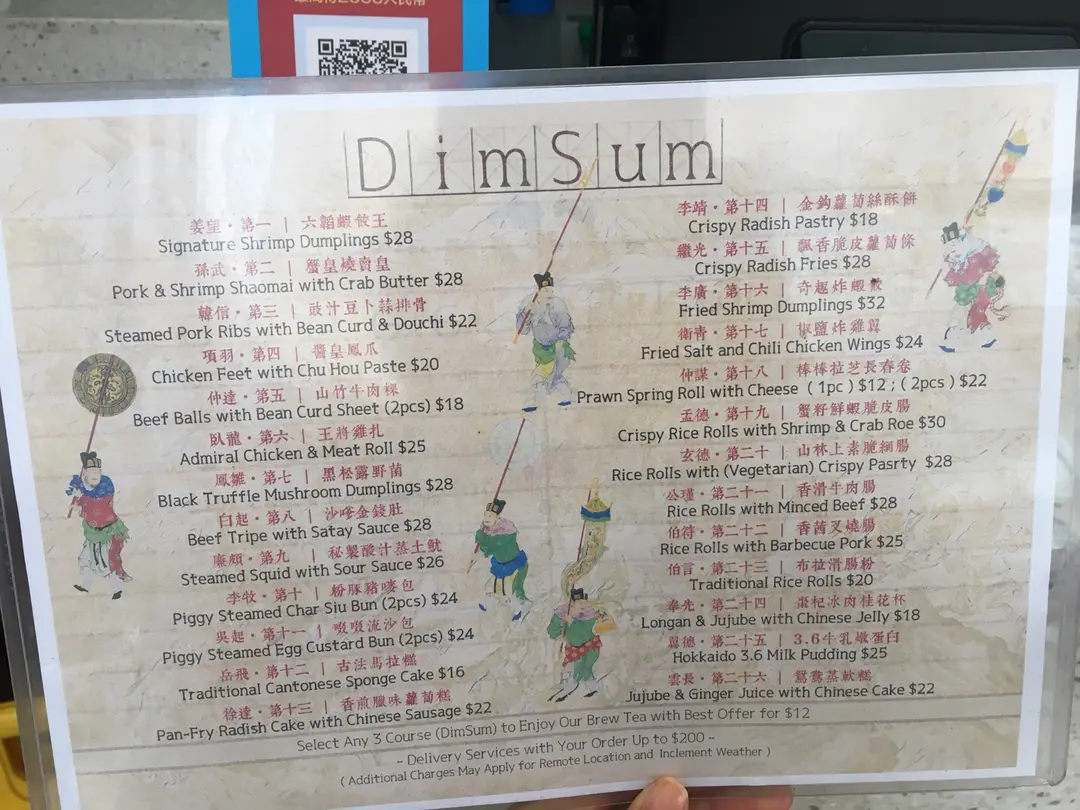 DimSum
姜望・第一 | 六韜蝦餃王
Signature Shrimp Dumplings $28
孫武・第二 | 蟹皇燒賣皇
Pork & Shrimp Shaomai with Crab Butter $28
韓信・第三 | 豉汁豆卜蒜排骨
Steamed Pork Ribs with Bean Curd & Douchi $22
項羽・第四 | 醬皇鳳爪
Chicken Feet with Chu Hou Paste $20
仲達・第五 | 山竹牛肉粿
Beef Balls with Bean Curd Sheet (2pcs) $18
臥龍・第六 | 王將雞扎
Admiral Chicken & Meat Roll $25
鳳雛・第七 | 黑松露野菌
Black Truffle Mushroom Dumplings $28
白起・第八 | 沙嗲金錢肚
Beef Tripe with Satay Sauce $28
廉頗・第九 | 秘製酸汁蒸土魷
Steamed Squid with Sour Sauce $26
李牧・第十 | 粉豚豬嘜包
Piggy Steamed Char Siu Bun (2pcs) $24
吳起・第十一 | 啜啜流沙包
Piggy Steamed Egg Custard Bun (2pcs) $24
岳飛・第十二 | 古法馬拉糕
Traditional Cantonese Sponge Cake $16
徐達・第十三 | 香煎臘味蘿蔔糕
Pan-Fry Radish Cake with Chinese Sausage $22
李靖・第十四 | 金鈎蘿蔔絲酥餅
Crispy Radish Pastry $18
繼光・第十五 | 飄香脆皮蘿蔔條
Crispy Radish Fries $28
李廣・第十六 | 奇趣炸蝦餃
Fried Shrimp Dumplings $32
衛青・第十七 | 椒鹽炸雞翼
Fried Salt and Chili Chicken Wings $24
仲謀・第十八 | 棒棒拉芝長春卷
Prawn Spring Roll with Cheese ( 1pc ) $12 ; ( 2pcs ) $22
孟德・第十九 | 蟹籽鮮蝦脆皮腸
Crispy Rice Rolls with Shrimp & Crab Roe $30
玄德・第二十 | 山林上素脆網腸
Rice Rolls with (Vegetarian) Crispy Pasrty $28
公瑾・第二十一 | 香滑牛肉腸
Rice Rolls with Minced Beef $28
伯符・第二十二 | 香茜叉燒腸
Rice Rolls with Barbecue Pork $25
伯言・第二十三 | 布拉滑腸粉
Traditional Rice Rolls $20
奉先・第二十四 | 棗杞冰肉桂花杯
Longan & Jujube with Chinese Jelly $18
翼德・第二十五 | 3.6牛乳燉蛋白
Hokkaido 3.6 Milk Pudding $25
雲長・第二十六 | 鴛鴦蒸軟糕
Jujube & Ginger Juice with Chinese Cake $22
Select Any 3 Course (DimSum) to Enjoy Our Brew Tea with Best Offer for $12
- Delivery Services with Your Order Up to $200 -
( Additional Charges May Apply for Remote Location and Inclement Weather )